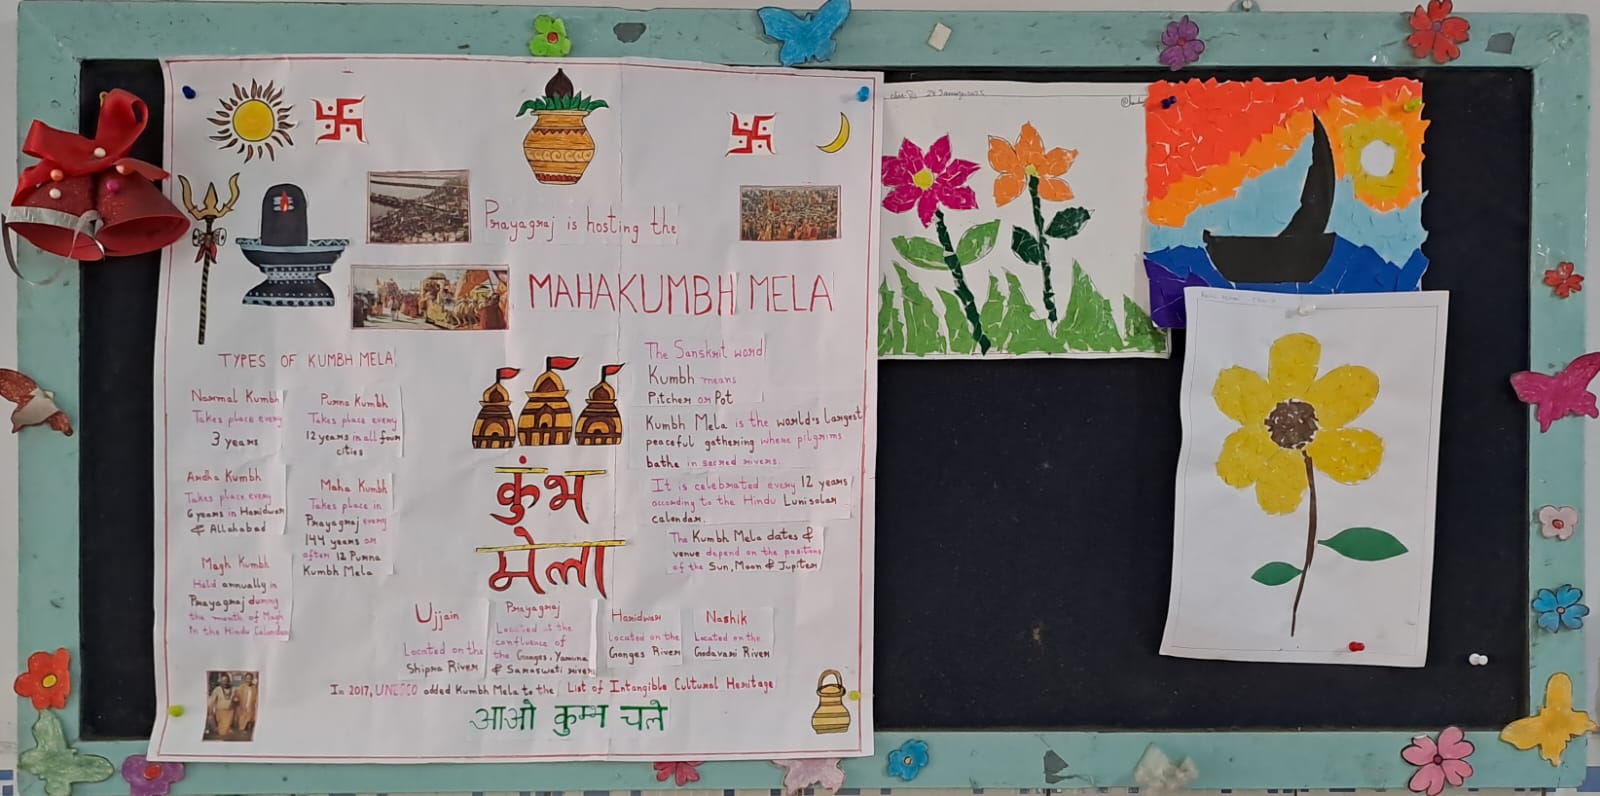 Prayagraj is hosting the
MAHAKUMBH MELA
TYPES OF KUMBH MELA
Normal Kumbh
Takes place every
3 years
Purna Kumbh
Takes place every
12 years in all four
cities
Ardha Kumbh
Takes place every
6 years in Haridwar
& Allahabad
Maha Kumbh
Takes place in
Prayagraj every
144 years or
after 12 Purna
Kumbh Mela
Magh Kumbh
Held annually in
Prayagraj during
the month of Magh
in the Hindu Calendar
The Sanskrit word
Kumbh means
Pitcher or Pot
Kumbh Mela is the world's largest
peaceful gathering where pilgrims
bathe in sacred rivers.
It is celebrated every 12 years,
according to the Hindu Lunisolar
calendar.
The Kumbh Mela dates &
venue depend on the positions
of the Sun, Moon & Jupiter
कुंभ
मेला
Ujjain
Located on the
Shipra River
Prayagraj
Located at the
confluence of
the Ganges, Yamuna
& Saraswati rivers
Haridwar
Located on the
Ganges River
Nashik
Located on the
Godavari River
In 2017, UNESCO added Kumbh Mela to the List of Intangible Cultural Heritage
आओ कुम्भ चले